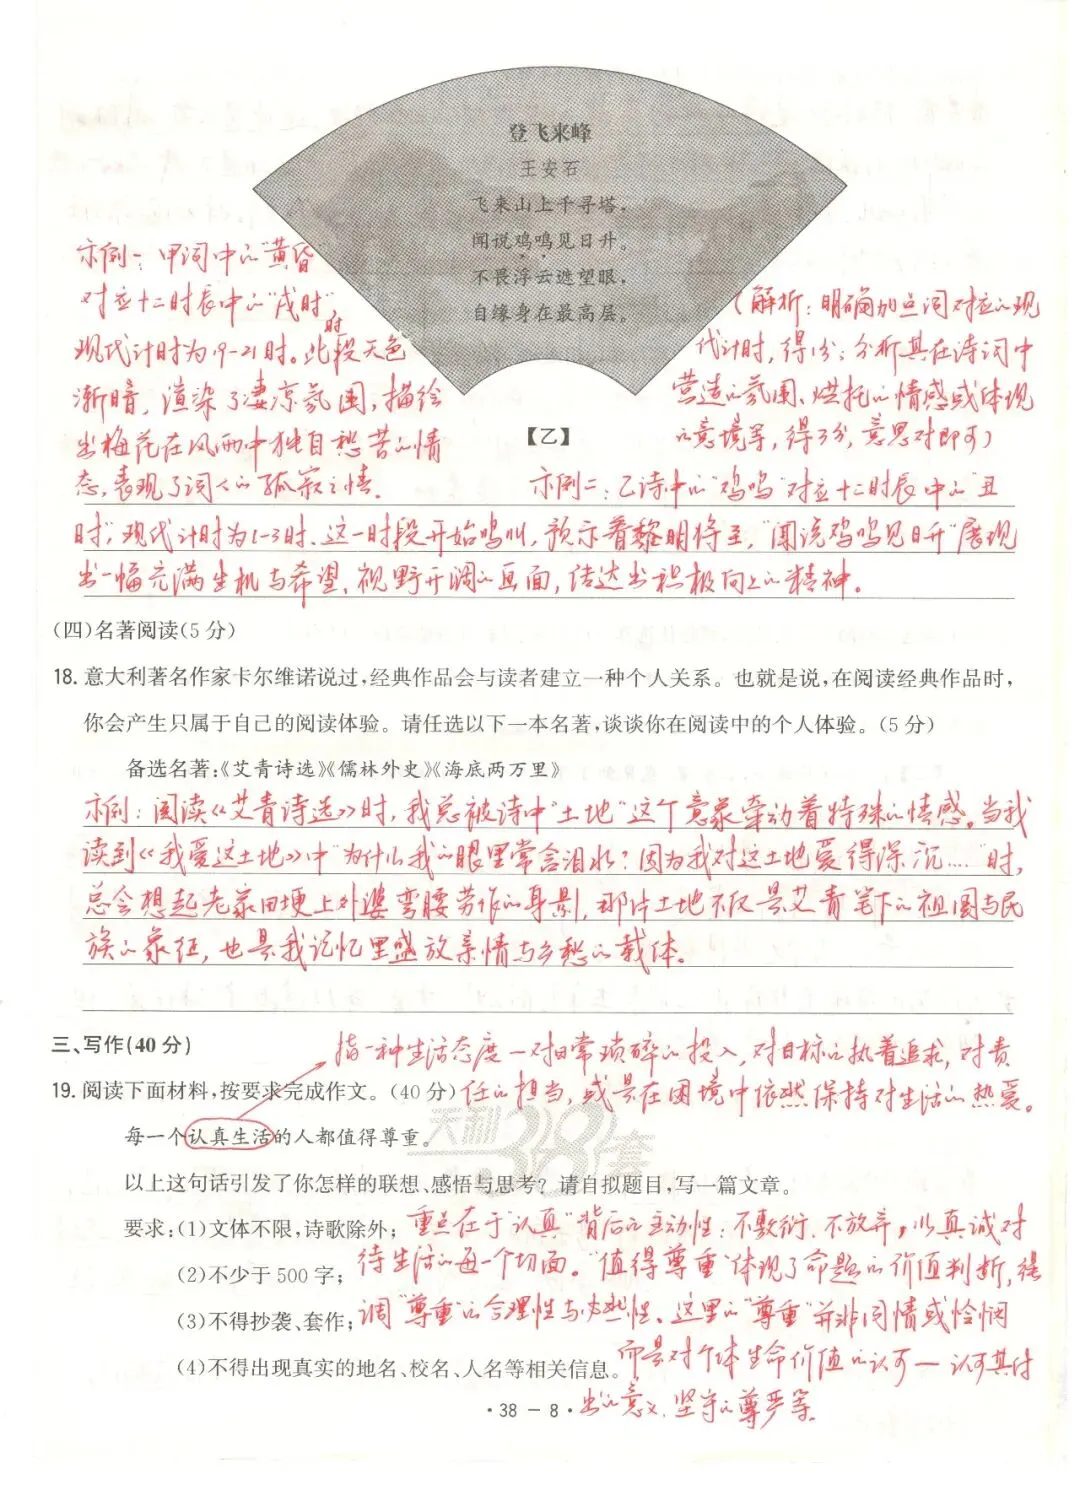 登飞来峰
王安石
飞来山上千寻塔，
闻说鸡鸣见日升。
不畏浮云遮望眼，
自缘身在最高层。
【乙】
示例一：甲词中的"黄昏"
对应十二时辰中的"戌时"，
现代计时为19-21时。此时段天色
渐暗，渲染了凄凉氛围，描绘
出梅花在风雨中独自愁苦的情
态，表现了词人的孤寂之情。
（解析：明确加点词对应的现
代计时，得1分；分析其在诗词中
营造的氛围、烘托的情感或体现
的意境等，得3分，意思对即可）
示例二：乙诗中的"鸡鸣"对应十二时辰中的"丑
时"，现代计时为1-3时。这一时段开始鸣叫，预示着黎明将至，"闻说鸡鸣见日升"展现
出一幅充满生机与希望、视野开阔的画面，传达出积极向上的精神。
(四)名著阅读(5分)
18.意大利著名作家卡尔维诺说过，经典作品会与读者建立一种个人关系。也就是说，在阅读经典作品时，
你会产生只属于自己的阅读体验。请任选以下一本名著，谈谈你在阅读中的个人体验。(5分)
备选名著:《艾青诗选》《儒林外史》《海底两万里》
示例：阅读《艾青诗选》时，我总被诗中"土地"这个意象牵动着特殊的情感。当我
读到《我爱这土地》中"为什么我的眼里常含泪水？因为我对这土地爱得深沉……"时，
总会想起老家田埂上外婆弯腰劳作的身影，那片土地不仅是艾青笔下的祖国与民
族的象征，也是我记忆里盛放亲情与乡愁的载体。
三、写作(40分)
指一种生活态度—对日常琐碎的投入，对目标的执着追求，对责
19.阅读下面材料，按要求完成作文。(40分)
任的担当，或是在困境中依然保持对生活的热爱。
每一个认真生活的人都值得尊重。
天利38套
以上这句话引发了你怎样的联想、感悟与思考？请自拟题目，写一篇文章。
要求:(1)文体不限，诗歌除外；
重点在于"认真"背后的主动性：不敷衍、不放弃，以真诚对
(2)不少于500字；
待生活的每一个切面。"值得尊重"体现了命题的价值判断，强
(3)不得抄袭、套作；
调"尊重"的合理性与必然性。这里的"尊重"并非同情或怜悯
(4)不得出现真实的地名、校名、人名等相关信息。
而是对个体生命价值的认可—认可其付
出的意义、坚守的尊严等。
·38－8·